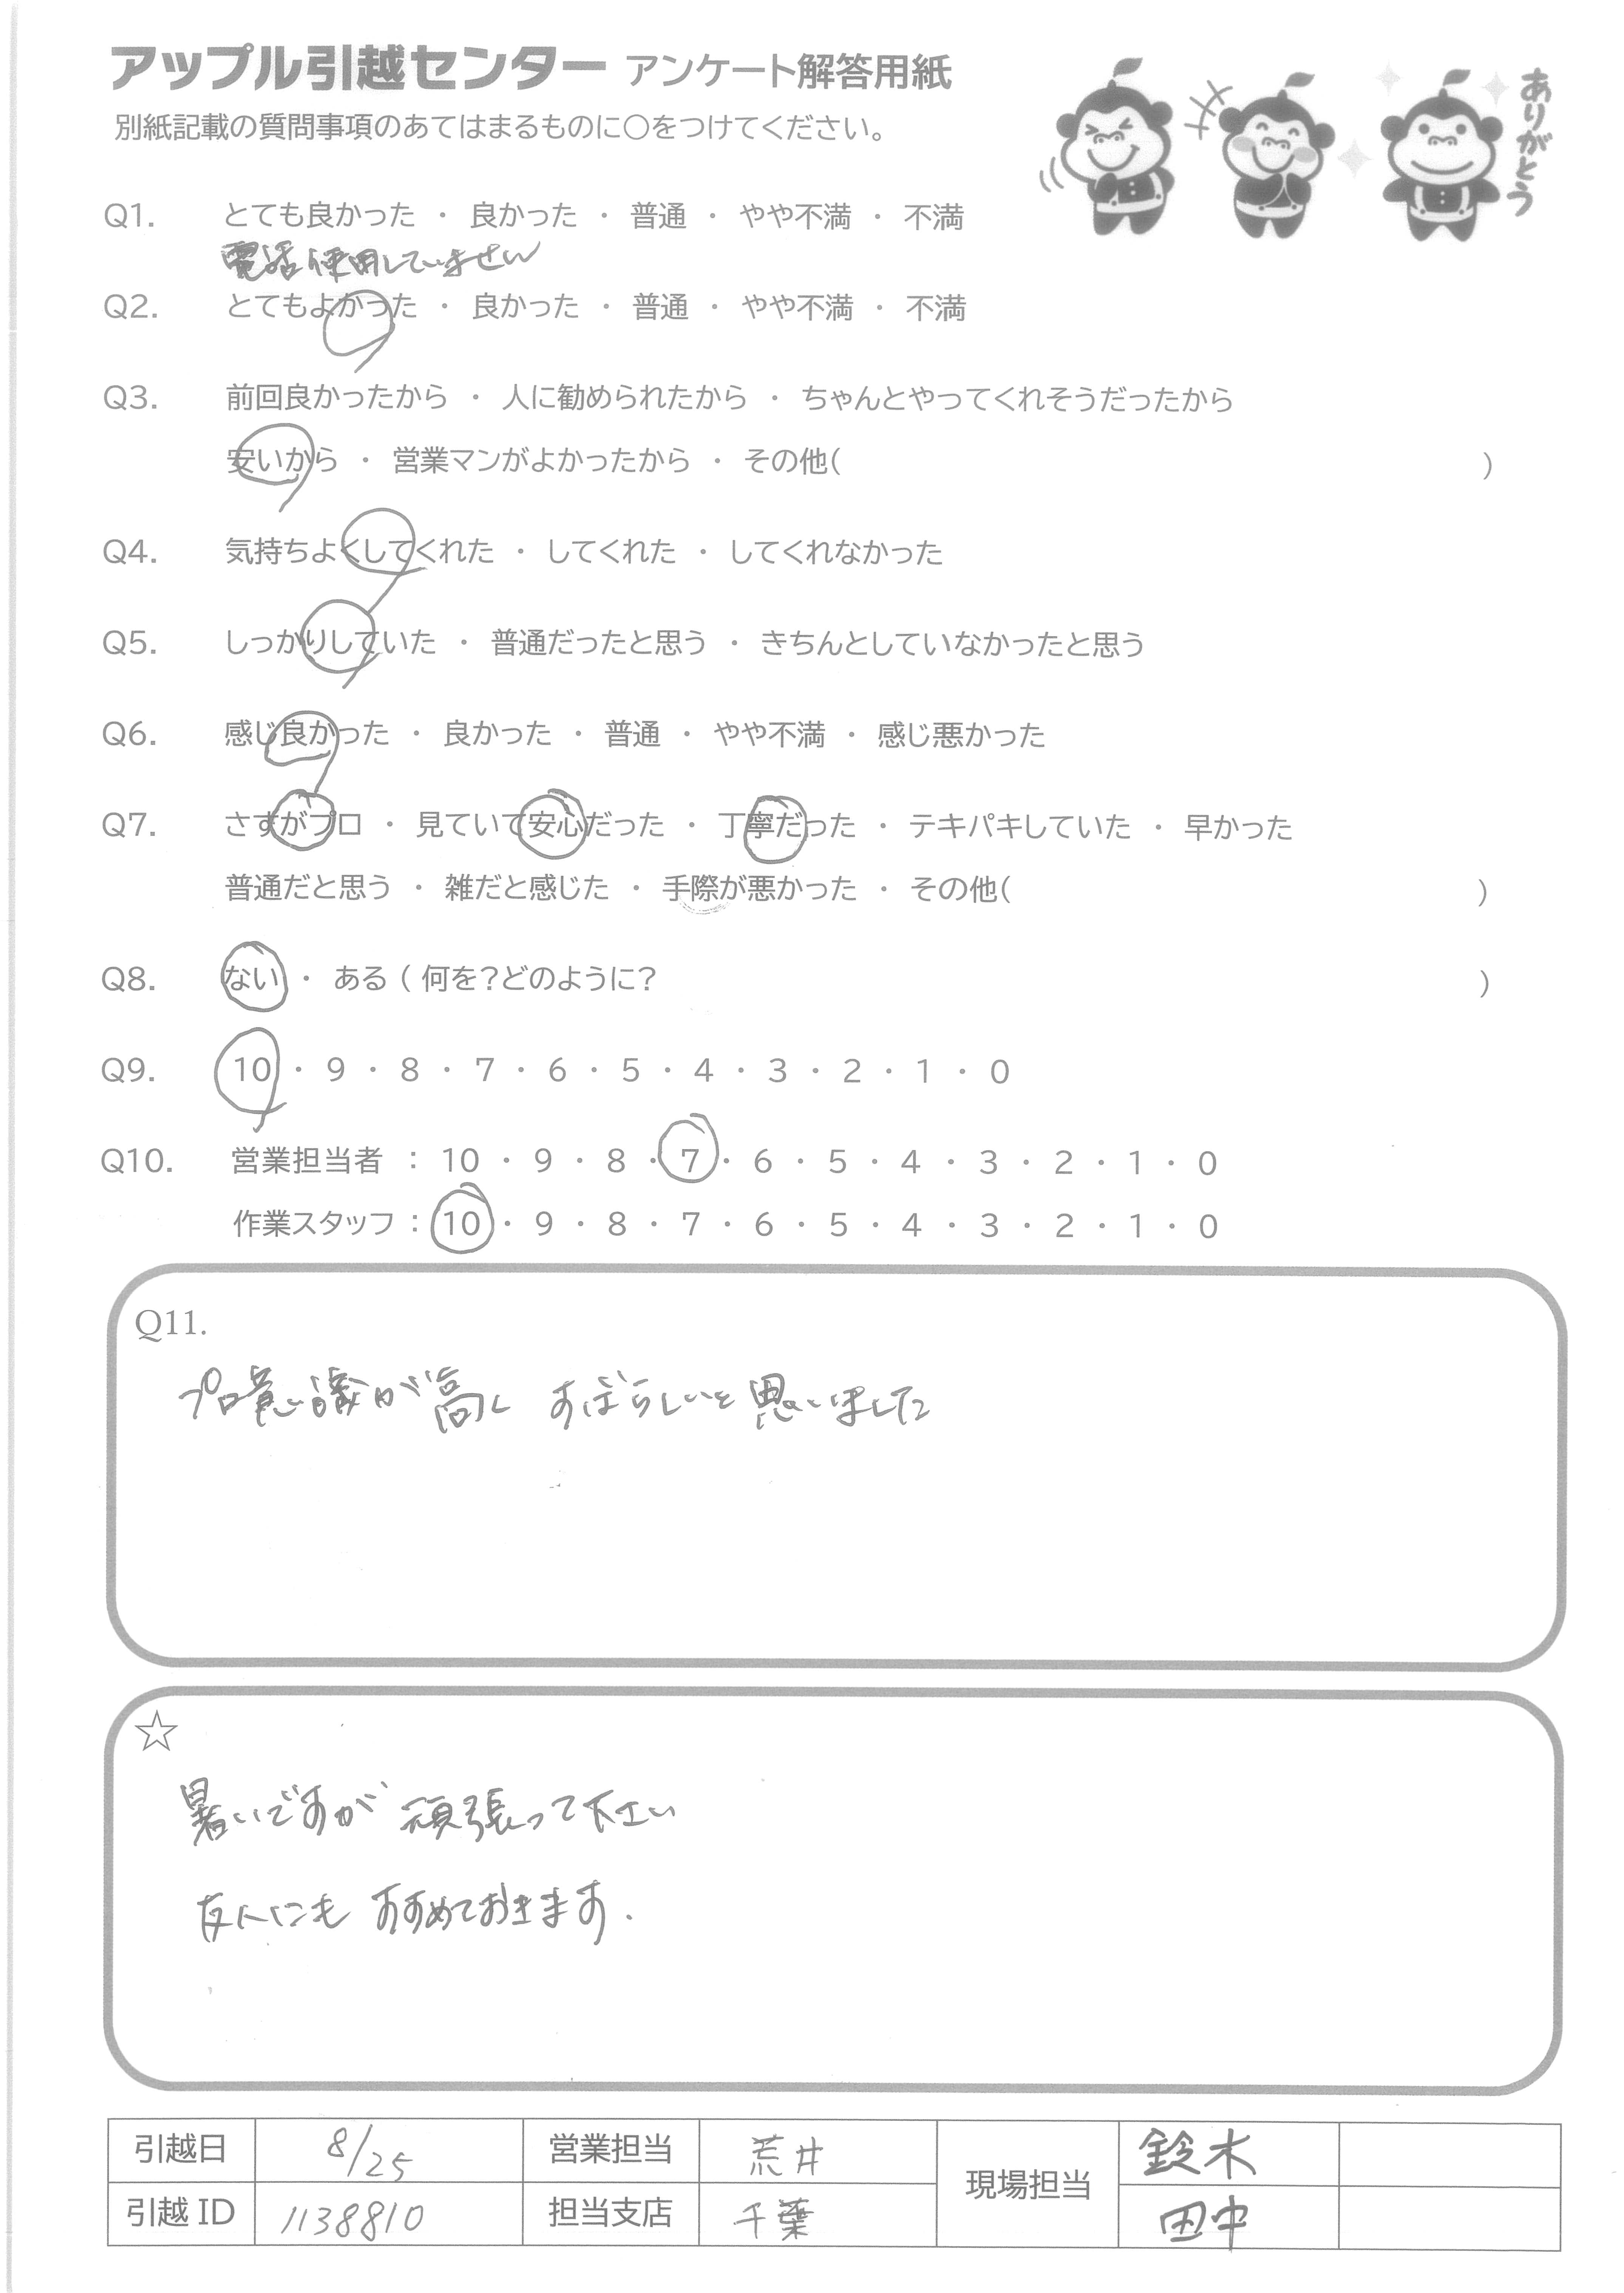 アップル引越センター アンケート解答用紙
別紙記載の質問事項のあてはまるものに○をつけてください。
ありがとう
Q1. とても良かった ・ 良かった ・ 普通 ・ やや不満 ・ 不満
電話使用していません
Q2. とてもよかった ・ 良かった ・ 普通 ・ やや不満 ・ 不満
Q3. 前回良かったから ・ 人に勧められたから ・ ちゃんとやってくれそうだったから
安いから ・ 営業マンがよかったから ・ その他( )
Q4. 気持ちよくしてくれた ・ してくれた ・ してくれなかった
Q5. しっかりしていた ・ 普通だったと思う ・ きちんとしていなかったと思う
Q6. 感じ良かった ・ 良かった ・ 普通 ・ やや不満 ・ 感じ悪かった
Q7. さすがプロ ・ 見ていて安心だった ・ 丁寧だった ・ テキパキしていた ・ 早かった
普通だと思う ・ 雑だと感じた ・ 手際が悪かった ・ その他( )
Q8. ない ・ ある ( 何を?どのように? )
Q9. 10 ・ 9 ・ 8 ・ 7 ・ 6 ・ 5 ・ 4 ・ 3 ・ 2 ・ 1 ・ 0
Q10. 営業担当者 : 10 ・ 9 ・ 8 ・ 7 ・ 6 ・ 5 ・ 4 ・ 3 ・ 2 ・ 1 ・ 0
作業スタッフ : 10 ・ 9 ・ 8 ・ 7 ・ 6 ・ 5 ・ 4 ・ 3 ・ 2 ・ 1 ・ 0
Q11.
プロ意識が高く すばらしいと思いました
☆
暑いですが 頑張って下さい
友人にも すすめておきます.
引越日 8/25 営業担当 荒井 現場担当 鈴木
引越ID 1138810 担当支店 千葉 田中